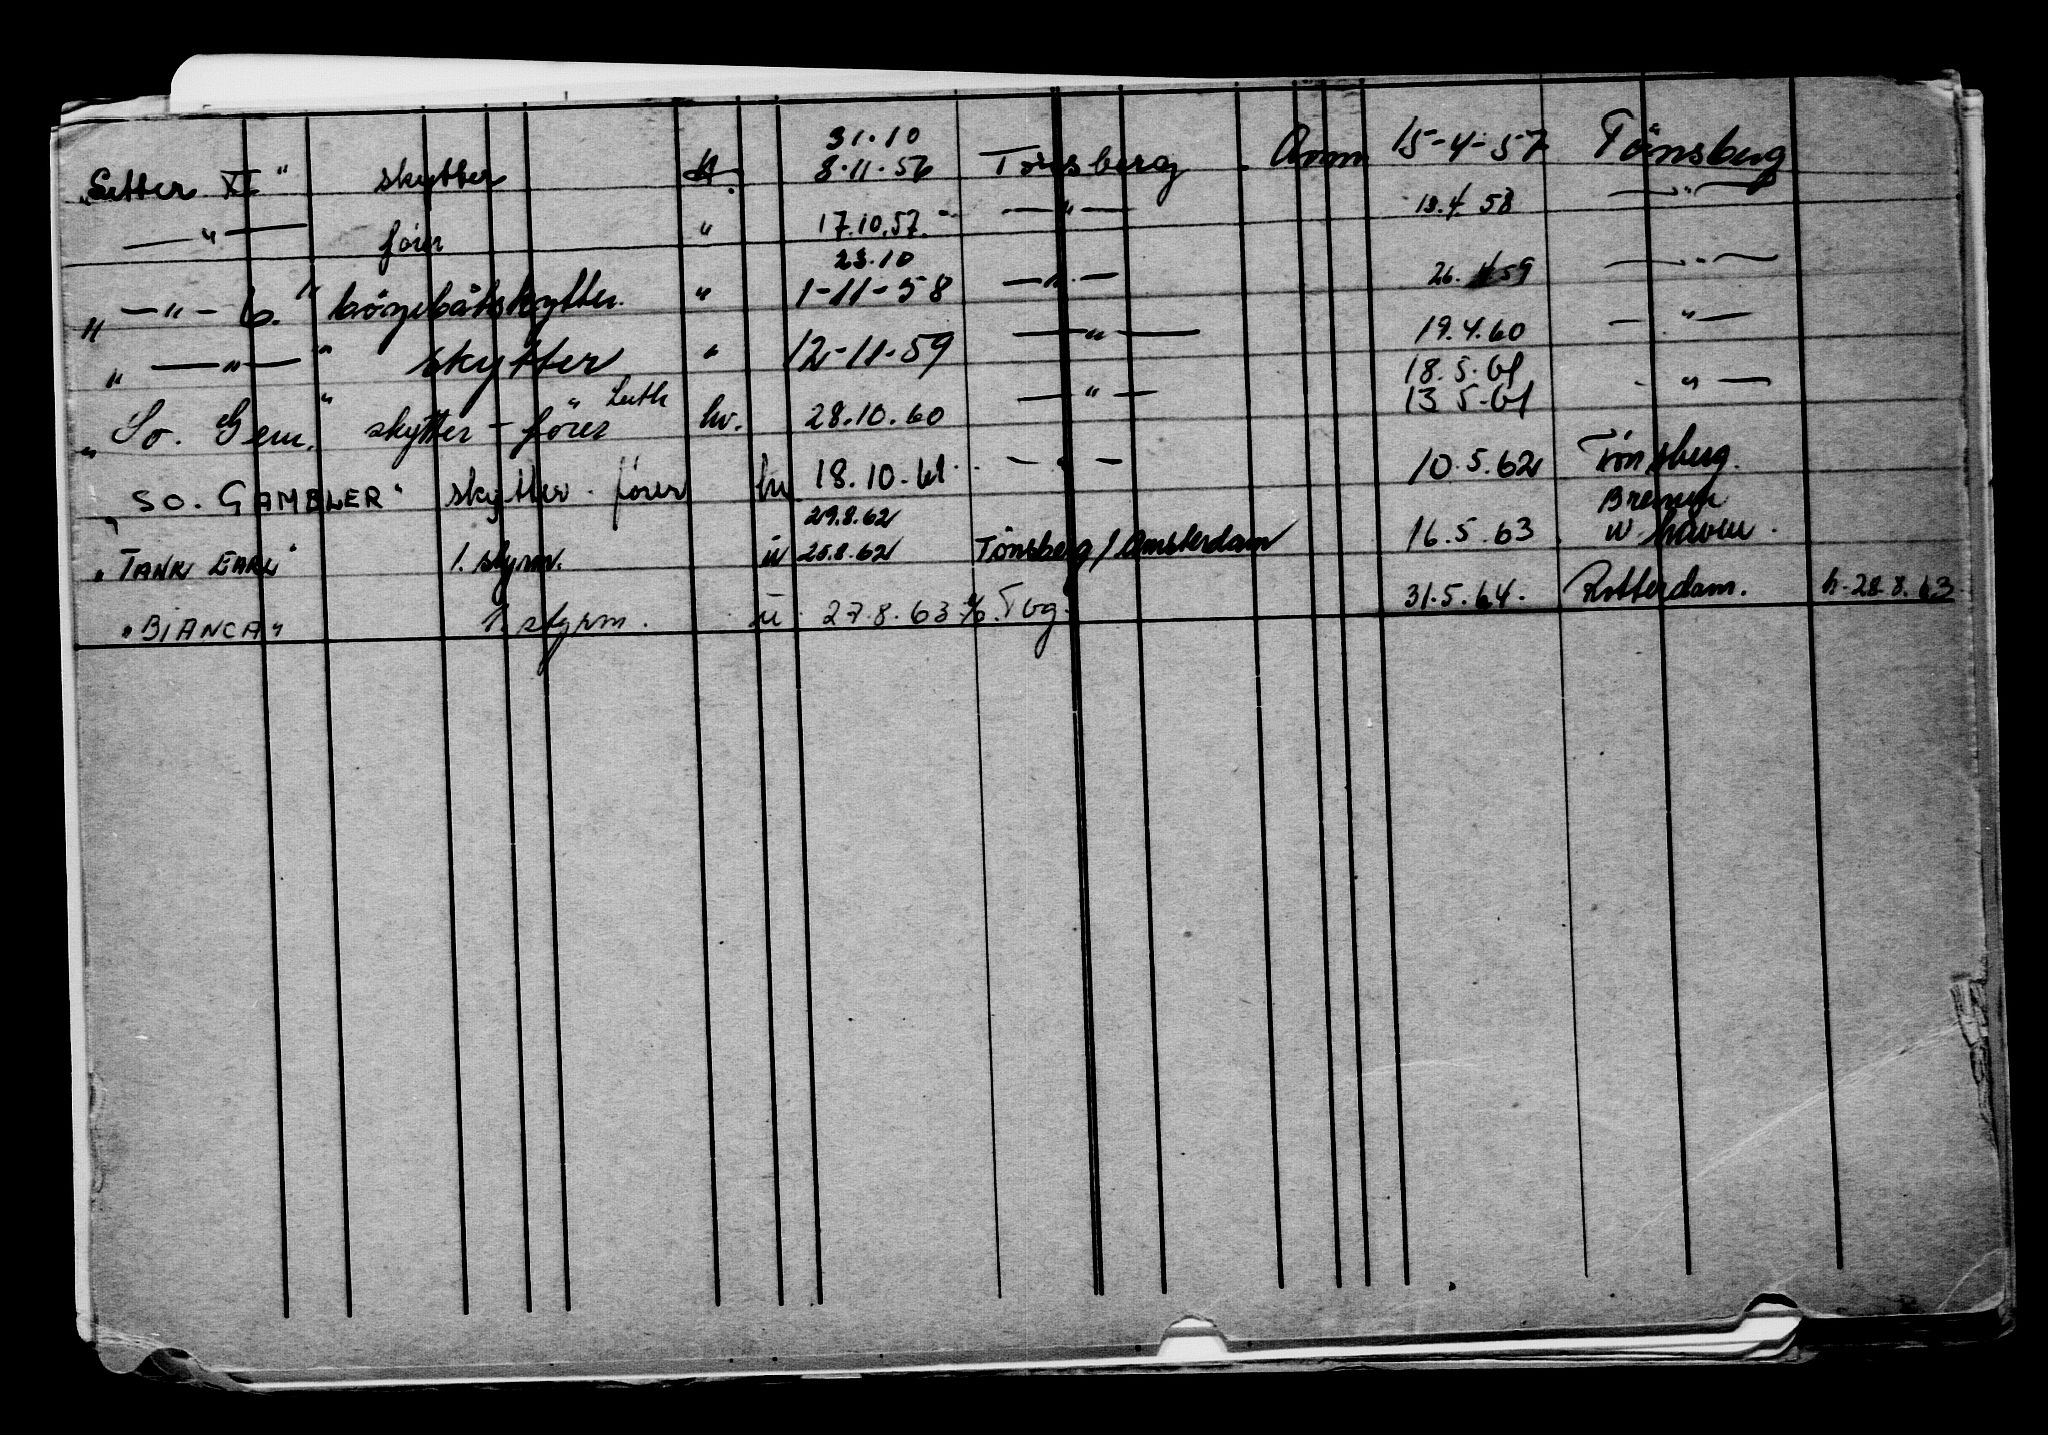 31.10
"Setter XI" skytter 8.11.56 Tönsberg. Anm 15-4-57 Tönsberg
—"— fører " 17.10.57.- —"— 18.4.58 —"—
23.10
"—"— 6." bøyebåtskytter. " 1-11-58 —"— 26. 59 —"—
"—"—" skytter " 12-11-59 —"— 19.4.60 —"—
18.5.61
"So. Gem." skytter - fører hv. 28.10.60 —"— 13 5-61 - " —
"SO. GAMBLER" skytter - fører hv 18.10.61. —"— 10.5.62 Tönsberg.
29.8.62 Bremer
"TANK EARL" 1. styrm. u 25.8.62 Tönsberg / Amsterdam 16.5.63. haven.
"BIANCA" 1. styrm. u. 27.8.63 Tbg. 31.5.64. Rotterdam. h. 28.8.63